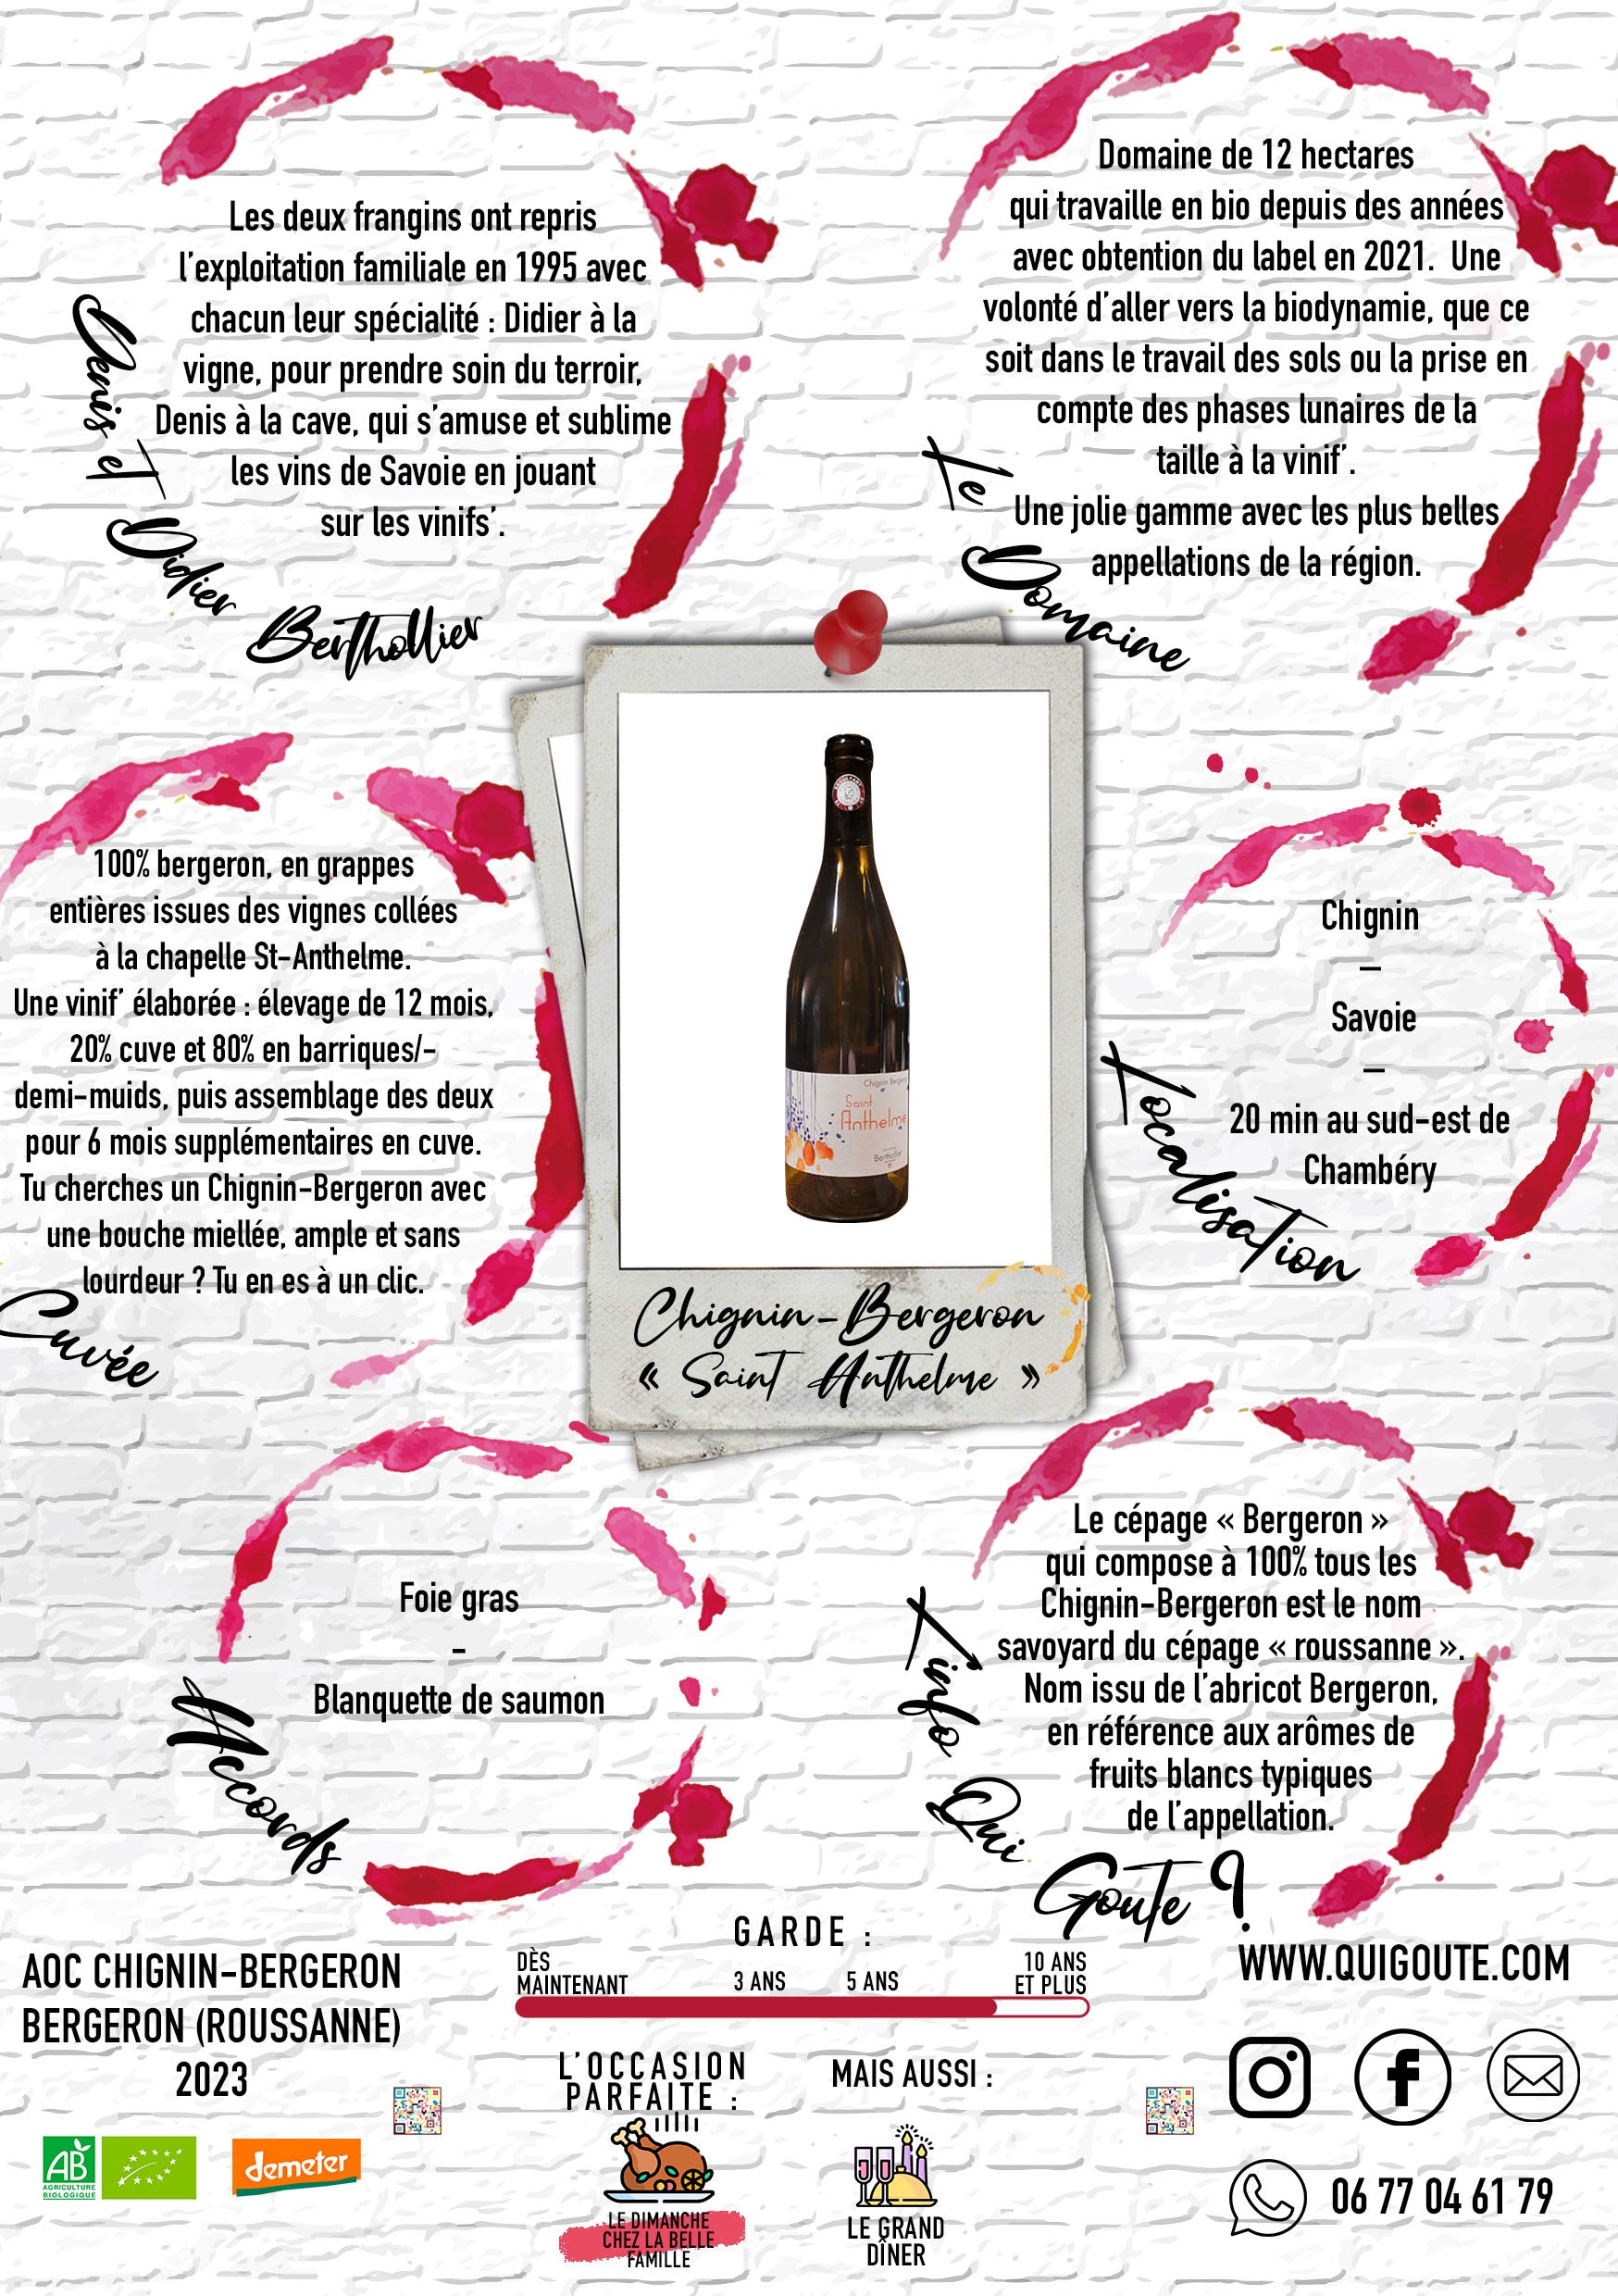 Les deux frangins ont repris
l'exploitation familiale en 1995 avec
chacun leur spécialité : Didier à la
vigne, pour prendre soin du terroir,
Denis à la cave, qui s'amuse et sublime
les vins de Savoie en jouant
sur les vinifs'.
Denis et Didier Berthollier
Domaine de 12 hectares
qui travaille en bio depuis des années
avec obtention du label en 2021. Une
volonté d'aller vers la biodynamie, que ce
soit dans le travail des sols ou la prise en
compte des phases lunaires de la
taille à la vinif'.
Une jolie gamme avec les plus belles
appellations de la région.
Le Domaine
100% bergeron, en grappes
entières issues des vignes collées
à la chapelle St-Anthelme.
Une vinif' élaborée : élevage de 12 mois,
20% cuve et 80% en barriques/-
demi-muids, puis assemblage des deux
pour 6 mois supplémentaires en cuve.
Tu cherches un Chignin-Bergeron avec
une bouche miellée, ample et sans
lourdeur ? Tu en es à un clic.
Cuvée
Chignin Bergeron
Saint
Anthelme
Berthollier
Chignin-Bergeron
« Saint Anthelme »
Chignin
–
Savoie
–
20 min au sud-est de
Chambéry
Localisation
Foie gras
-
Blanquette de saumon
Accords
Le cépage « Bergeron »
qui compose à 100% tous les
Chignin-Bergeron est le nom
savoyard du cépage « roussanne ».
Nom issu de l'abricot Bergeron,
en référence aux arômes de
fruits blancs typiques
de l'appellation.
L'info Qui Goute ?
AOC CHIGNIN-BERGERON
BERGERON (ROUSSANNE)
2023
AB
AGRICULTURE
BIOLOGIQUE
demeter
GARDE :
DÈS
MAINTENANT
3 ANS
5 ANS
10 ANS
ET PLUS
L'OCCASION
PARFAITE :
LE DIMANCHE
CHEZ LA BELLE
FAMILLE
MAIS AUSSI :
LE GRAND
DÎNER
WWW.QUIGOUTE.COM
06 77 04 61 79